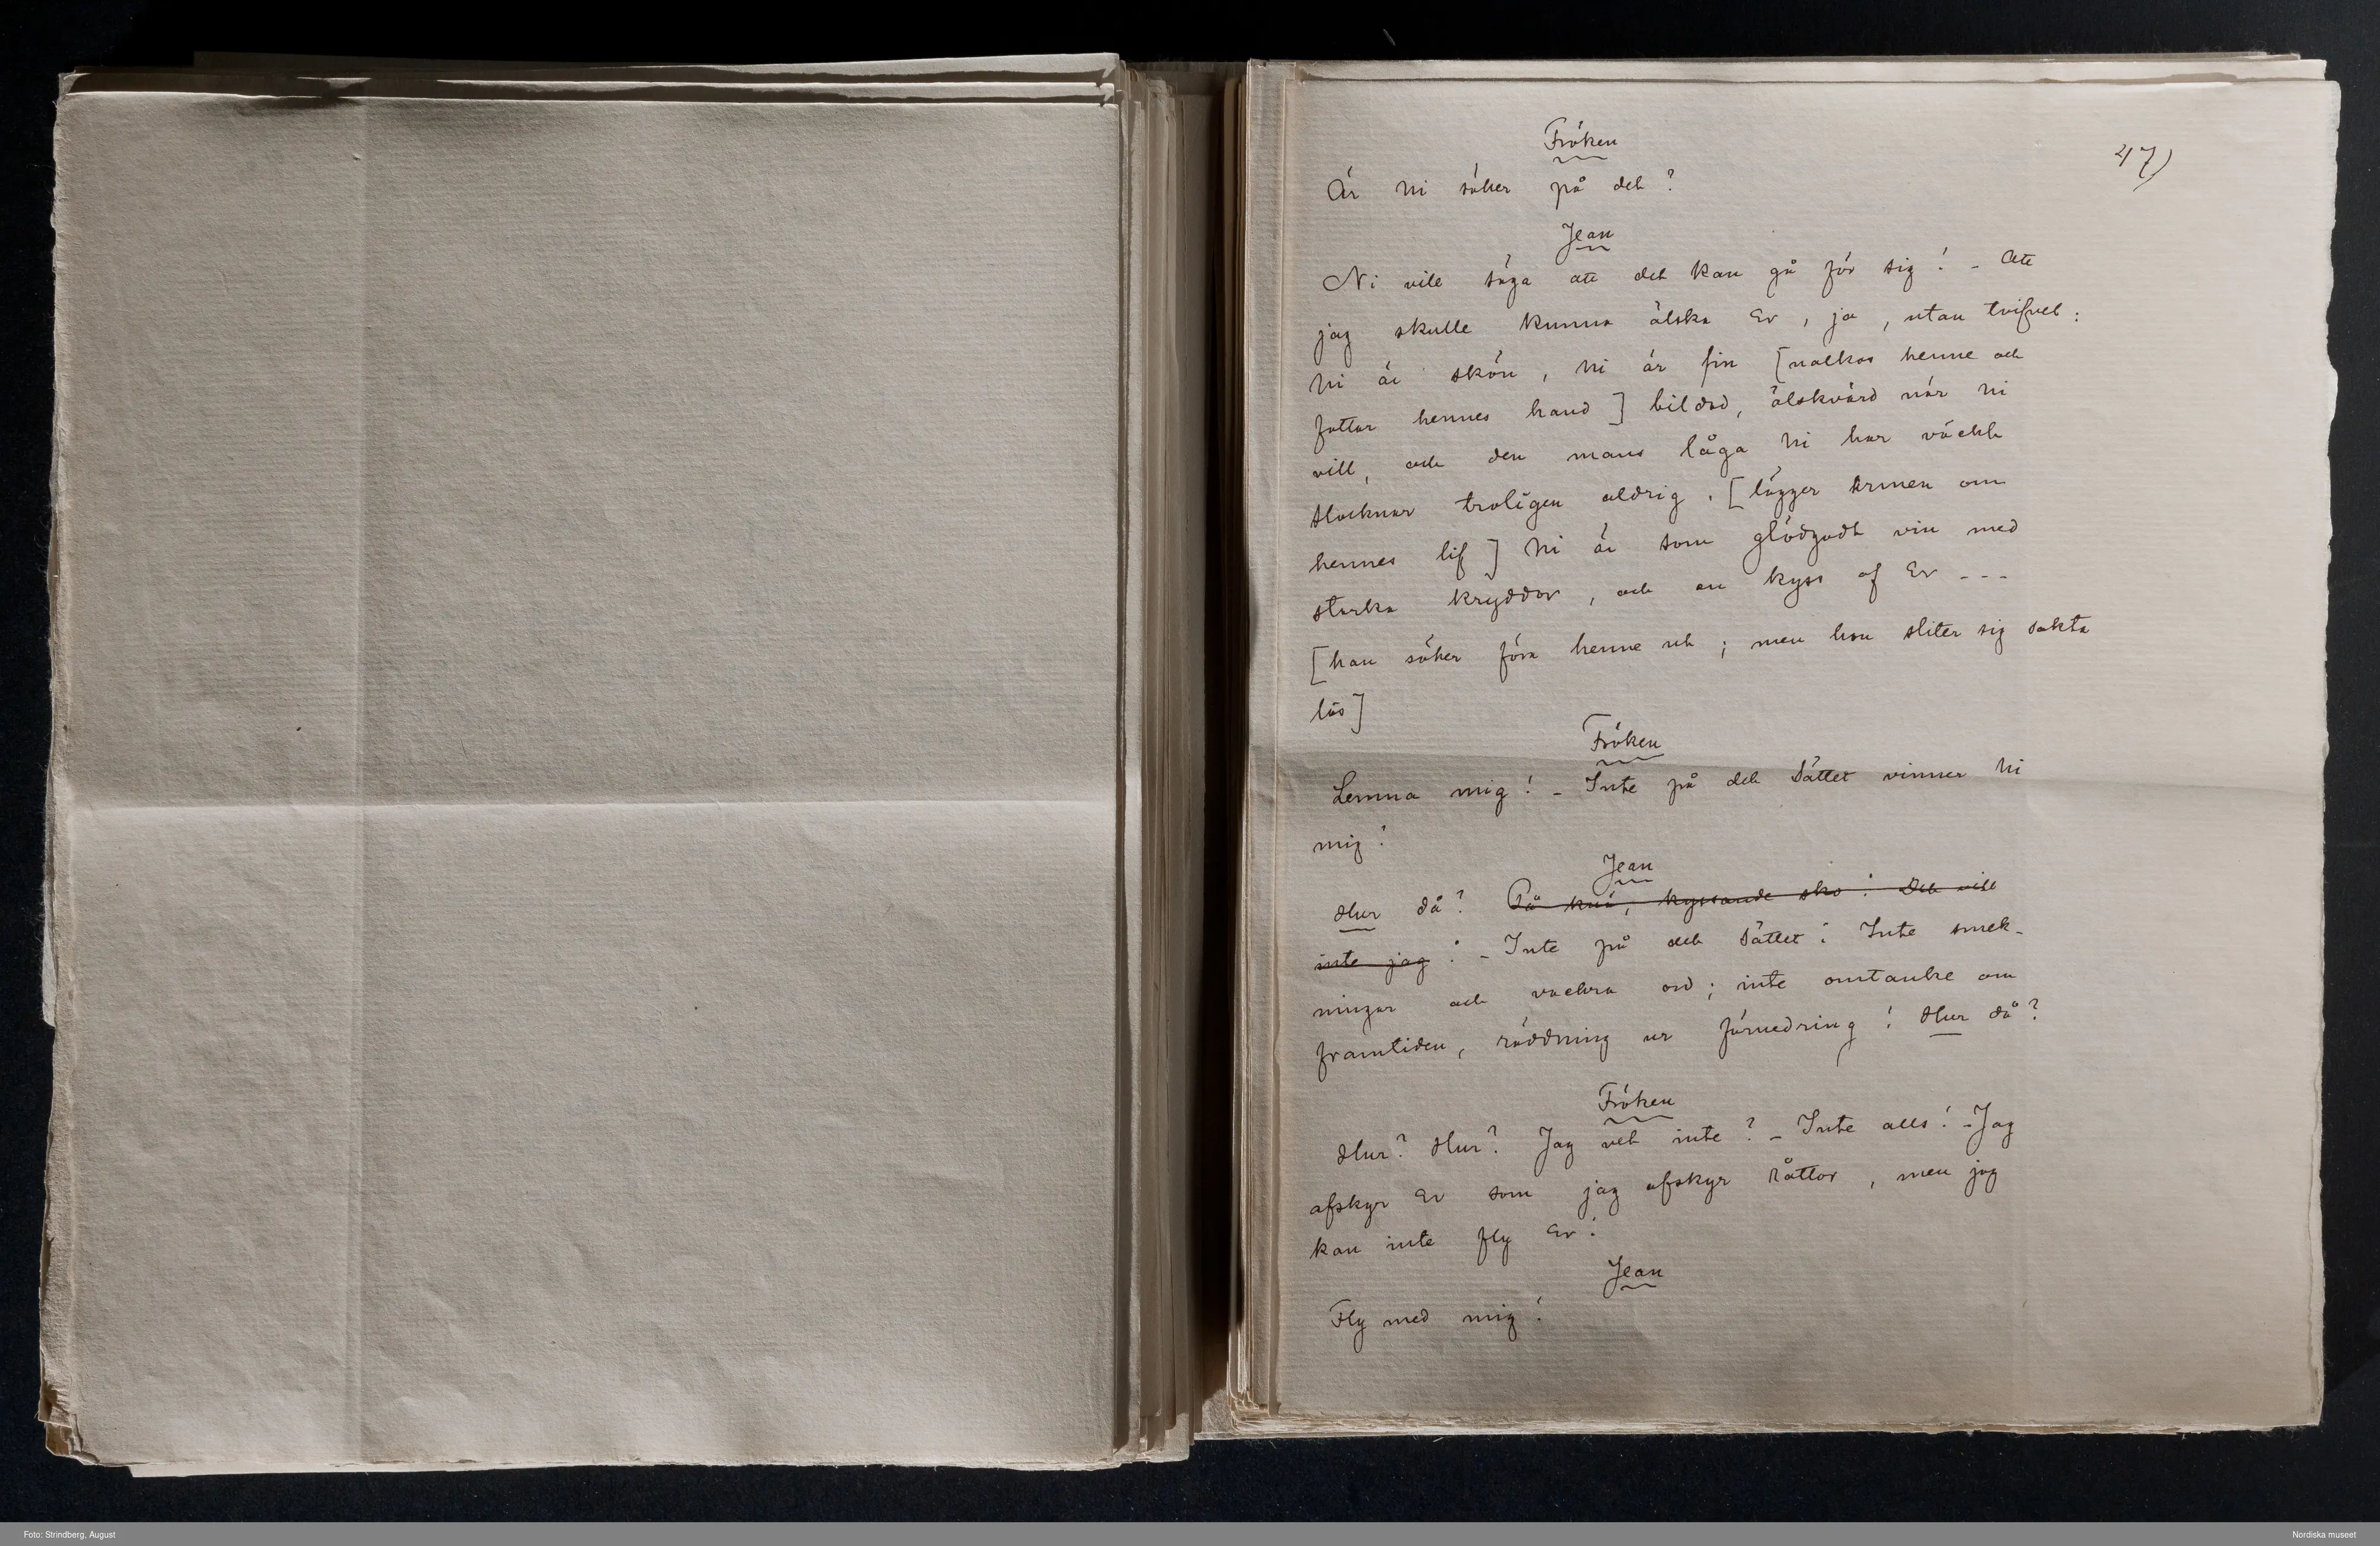 47)
Fröken
Är ni säker på det?
Jean
Ni vill säga att det kan gå för sig! – Att
jag skulle kunna älska Er, ja, utan tvifvel:
ni är skön, ni är fin [nalkas henne och
fattar hennes hand] bildad, älskvärd när ni
vill, och den mans låga ni har väckt
slocknar troligen aldrig. [lägger armen om
hennes lif] Ni är som glödgadt vin med
starka kryddor, och en kyss af Er ---
[han söker föra henne ut; men hon sliter sig sakta
lös]
Fröken
Lemna mig! – Inte på det sättet vinner ni
mig!
Jean
Hur då? På knä, kyssande sko! Det vill
inte jag! – Inte på det sättet! Inte smek-
ningar och vackra ord; inte omtanke om
framtiden, räddning ur förnedring! Hur då?
Fröken
Hur? Hur? Jag vet inte? – Inte alls! – Jag
afskyr Er som jag afskyr råttor, men jag
kan inte fly Er!
Jean
Fly med mig!
Foto: Strindberg, August
Nordiska museet